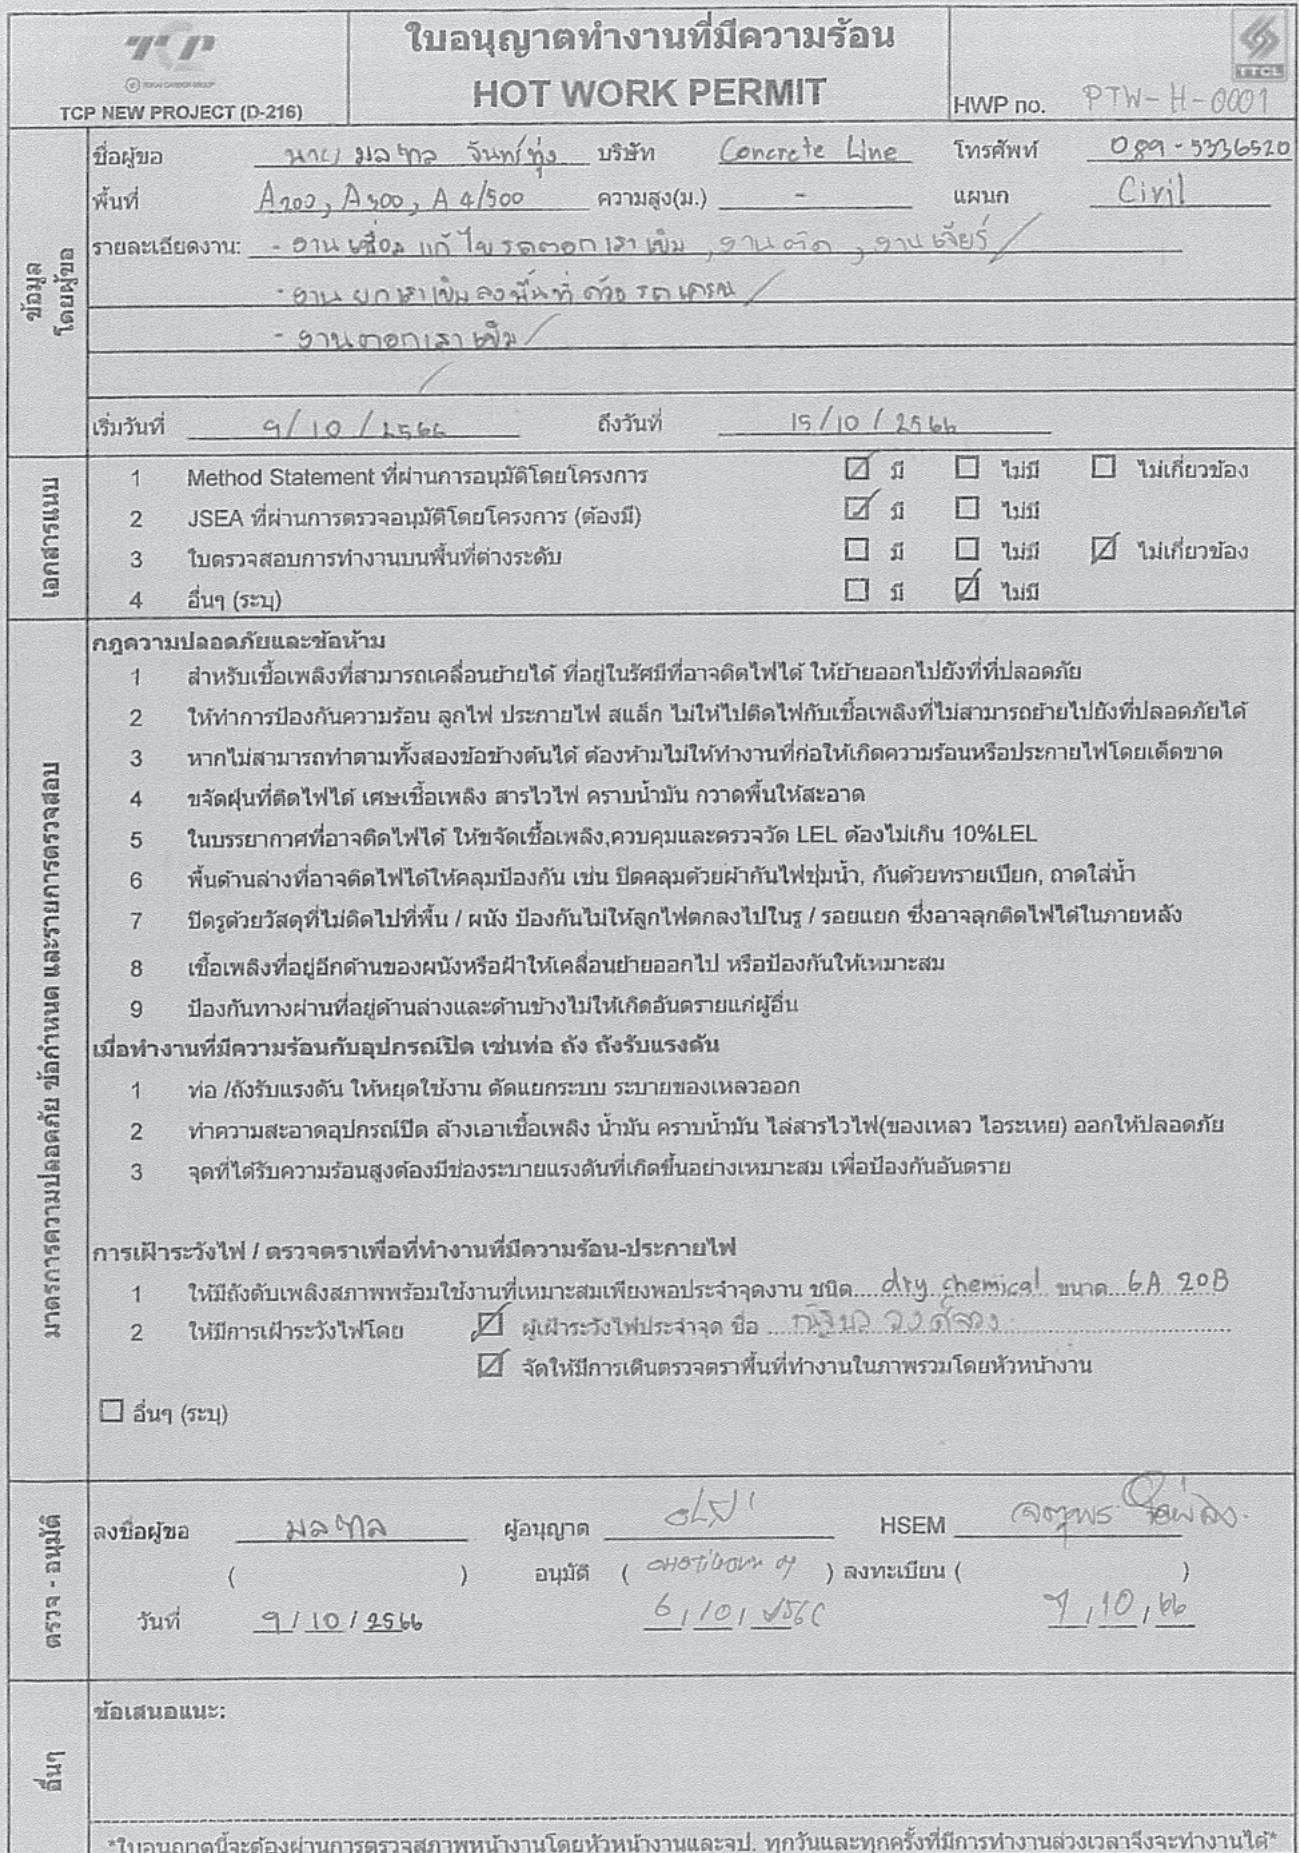 TCP
TOKAI CARBON GROUP
TCP NEW PROJECT (D-216)
ใบอนุญาตทำงานที่มีความร้อน
HOT WORK PERMIT
TTCL
HWP no. PTW-H-0001
ข้อมูลโดยผู้ขอ
ชื่อผู้ขอ นาย จันทร์ทุ่ง บริษัท Concrete Line โทรศัพท์ 089-5336520
พื้นที่ A200, A300, A4/500 ความสูง(ม.) - แผนก Civil
รายละเอียดงาน: - งานเชื่อม แก้ไขรถตอกเสาเข็ม, งานตัด, งานเจียร์
- งานยกเสาเข็มลงพื้นที่ ด้วยรถเครน
- งานตอกเสาเข็ม
เริ่มวันที่ 9/10/2566 ถึงวันที่ 15/10/2566
เอกสารแนบ
1 Method Statement ที่ผ่านการอนุมัติโดยโครงการ ☑ มี ☐ ไม่มี ☐ ไม่เกี่ยวข้อง
2 JSEA ที่ผ่านการตรวจอนุมัติโดยโครงการ (ต้องมี) ☑ มี ☐ ไม่มี
3 ใบตรวจสอบการทำงานบนพื้นที่ต่างระดับ ☐ มี ☐ ไม่มี ☑ ไม่เกี่ยวข้อง
4 อื่นๆ (ระบุ) ☐ มี ☑ ไม่มี
มาตรการความปลอดภัย ข้อกำหนด และรายการตรวจสอบ
กฎความปลอดภัยและข้อห้าม
1 สำหรับเชื้อเพลิงที่สามารถเคลื่อนย้ายได้ ที่อยู่ในรัศมีที่อาจติดไฟได้ ให้ย้ายออกไปยังที่ที่ปลอดภัย
2 ให้ทำการป้องกันความร้อน ลูกไฟ ประกายไฟ สแล็ก ไม่ให้ไปติดไฟกับเชื้อเพลิงที่ไม่สามารถย้ายไปยังที่ปลอดภัยได้
3 หากไม่สามารถทำตามทั้งสองข้อข้างต้นได้ ต้องห้ามไม่ให้ทำงานที่ก่อให้เกิดความร้อนหรือประกายไฟโดยเด็ดขาด
4 ขจัดฝุ่นที่ติดไฟได้ เศษเชื้อเพลิง สารไวไฟ คราบน้ำมัน กวาดพื้นให้สะอาด
5 ในบรรยากาศที่อาจติดไฟได้ ให้ขจัดเชื้อเพลิง,ควบคุมและตรวจวัด LEL ต้องไม่เกิน 10%LEL
6 พื้นด้านล่างที่อาจติดไฟได้ให้คลุมป้องกัน เช่น ปิดคลุมด้วยผ้ากันไฟชุ่มน้ำ, กันด้วยทรายเปียก, ถาดใส่น้ำ
7 ปิดรูด้วยวัสดุที่ไม่ติดไปที่พื้น / ผนัง ป้องกันไม่ให้ลูกไฟตกลงไปในรู / รอยแยก ซึ่งอาจลุกติดไฟได้ในภายหลัง
8 เชื้อเพลิงที่อยู่อีกด้านของผนังหรือฝาให้เคลื่อนย้ายออกไป หรือป้องกันให้เหมาะสม
9 ป้องกันทางผ่านที่อยู่ด้านล่างและด้านข้างไม่ให้เกิดอันตรายแก่ผู้อื่น
เมื่อทำงานที่มีความร้อนกับอุปกรณ์ปิด เช่นท่อ ถัง ถังรับแรงดัน
1 ท่อ /ถังรับแรงดัน ให้หยุดใช้งาน ตัดแยกระบบ ระบายของเหลวออก
2 ทำความสะอาดอุปกรณ์ปิด ล้างเอาเชื้อเพลิง น้ำมัน คราบน้ำมัน ไล่สารไวไฟ(ของเหลว ไอระเหย) ออกให้ปลอดภัย
3 จุดที่ได้รับความร้อนสูงต้องมีช่องระบายแรงดันที่เกิดขึ้นอย่างเหมาะสม เพื่อป้องกันอันตราย
การเฝ้าระวังไฟ / ตรวจตราเพื่อที่ทำงานที่มีความร้อน-ประกายไฟ
1 ให้มีถังดับเพลิงสภาพพร้อมใช้งานที่เหมาะสมเพียงพอประจำจุดงาน ชนิด dry chemical ขนาด 6A 20B
2 ให้มีการเฝ้าระวังไฟโดย ☑ ผู้เฝ้าระวังไฟประจำจุด ชื่อ
☑ จัดให้มีการเดินตรวจตราพื้นที่ทำงานในภาพรวมโดยหัวหน้างาน
☐ อื่นๆ (ระบุ)
ตรวจ - อนุมัติ
ลงชื่อผู้ขอ ผู้อนุญาต HSEM
( ) อนุมัติ ( ) ลงทะเบียน ( )
วันที่ 9/10/2566 6/10/2566 9/10/66
อื่นๆ
ข้อเสนอแนะ:
*ใบอนุญาตนี้จะต้องผ่านการตรวจสภาพหน้างานโดยหัวหน้างานและจป. ทุกวันและทุกครั้งที่มีการทำงานล่วงเวลาจึงจะทำงานได้*